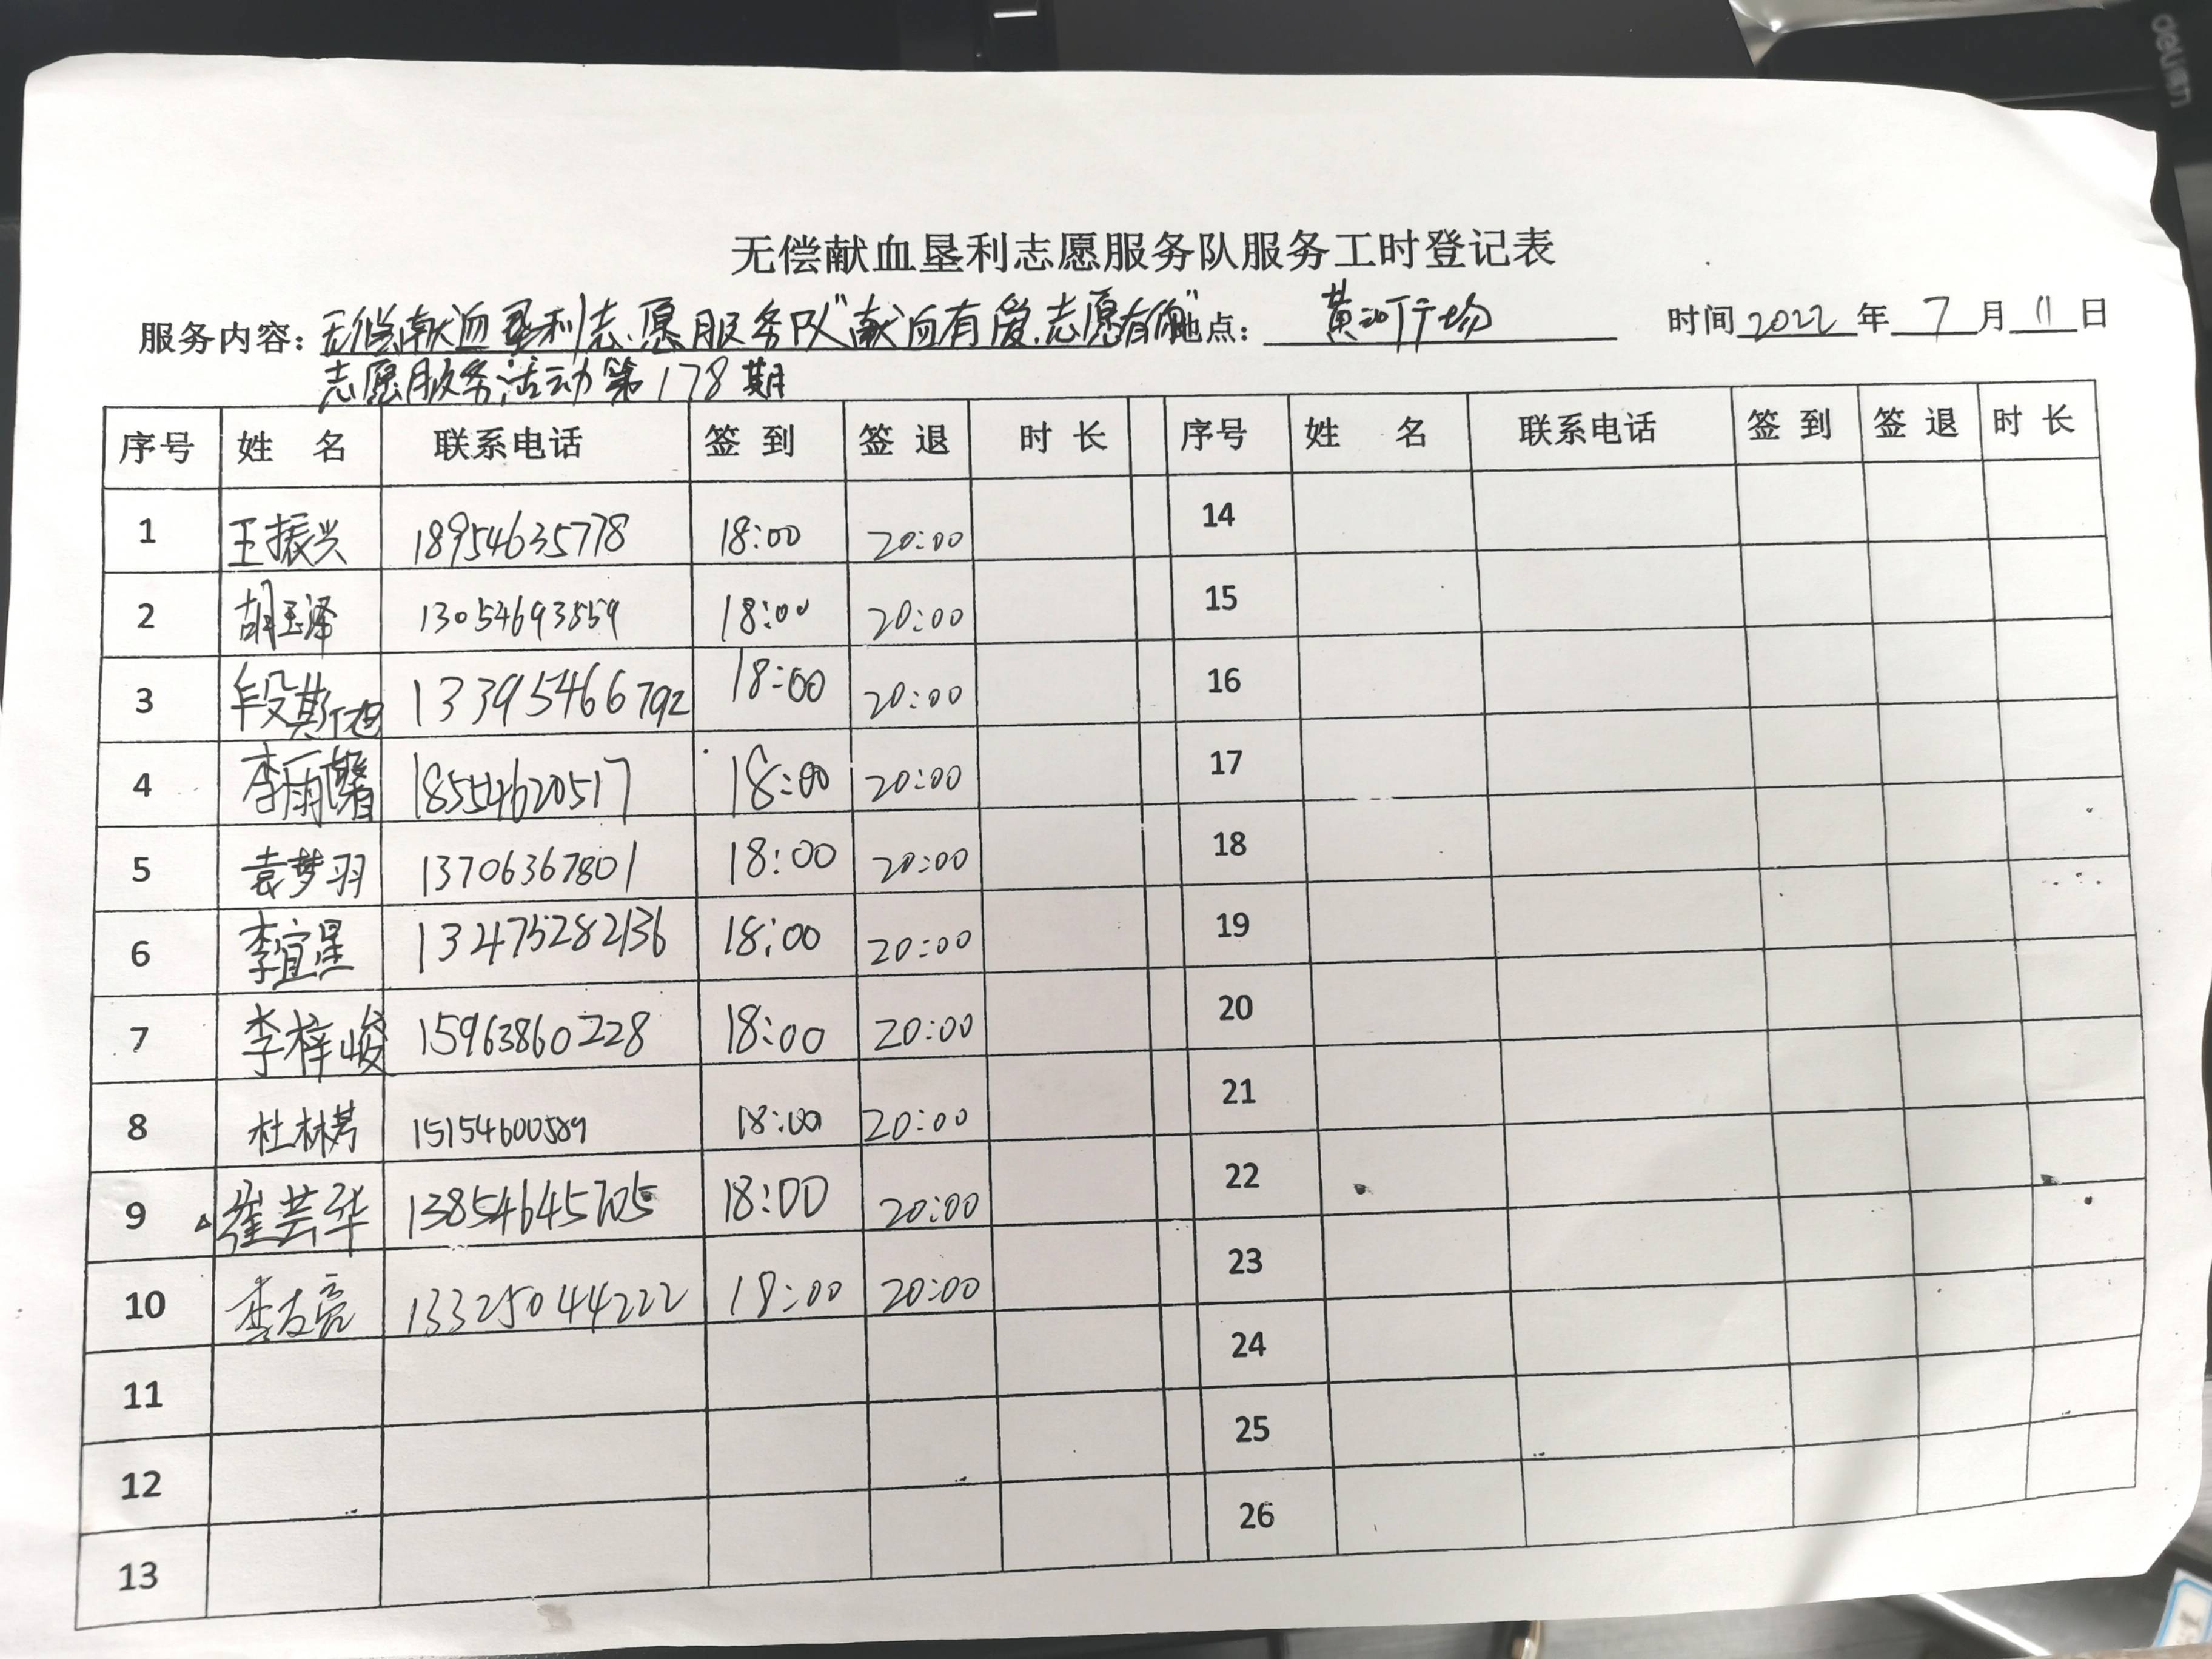 无偿献血垦利志愿服务队服务工时登记表
服务内容：无偿献血垦利志愿服务队"献血有爱.志愿有你" 地点： 黄河广场 时间 2022 年 7 月 11 日
志愿服务活动第178期
序号 姓 名 联系电话 签 到 签 退 时 长 序号 姓 名 联系电话 签 到 签 退 时 长
1 王振兴 18954635778 18:00 20:00 14
2 胡玉泽 13054693559 18:00 20:00 15
3 段斯 13395466792 18:00 20:00 16
4 李雨馨 18554620517 18:00 20:00 17
5 袁梦羽 13706367801 18:00 20:00 18
6 李宜星 13475282136 18:00 20:00 19
7 李梓峻 15963860228 18:00 20:00 20
8 杜林芳 15154600589 18:00 20:00 21
9 崔芸华 13854645705 18:00 20:00 22
10 李友亮 13325044222 18:00 20:00 23
11 24
12 25
13 26
deli